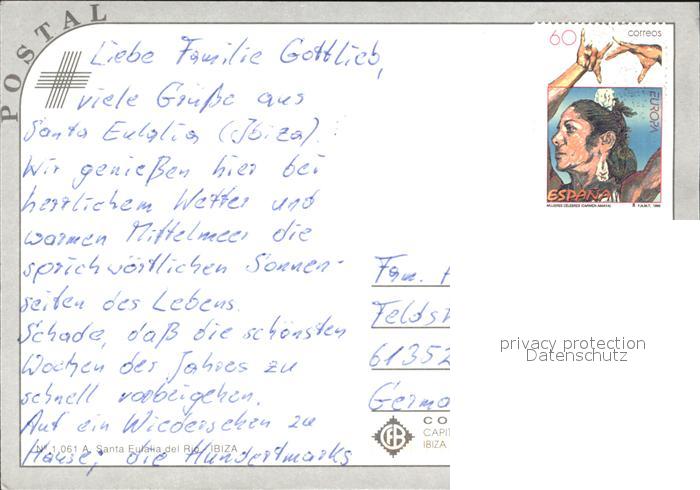 POSTAL
Liebe Familie Gottlieb,
viele Grüße aus
Santa Eulalia (Ibiza).
Wir genießen hier bei
herrlichem Wetter und
warmen Mittelmeer die
sprichwörtlichen Sonnen-
seiten des Lebens.
Schade, daß die schönsten
Wochen des Jahres zu
schnell vorbeigehen.
Auf ein Wiedersehen zu
Hause; die Hundertmarks
Nº 1.061 A. Santa Eulalia del Rio. IBIZA
60 correos
EUROPA
ESPAÑA
MUJERES CELEBRES (CARMEN AMAYA) F.N.M.T. 1996
Fam.
61352
privacy protection
Datenschutz
IBIZA